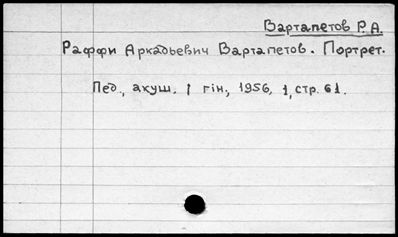 Вартапетов Р.А.
Раффи Аркадьевич Вартапетов. Портрет.
Пед., акуш. і гін., 1956, 1, стр. 61.